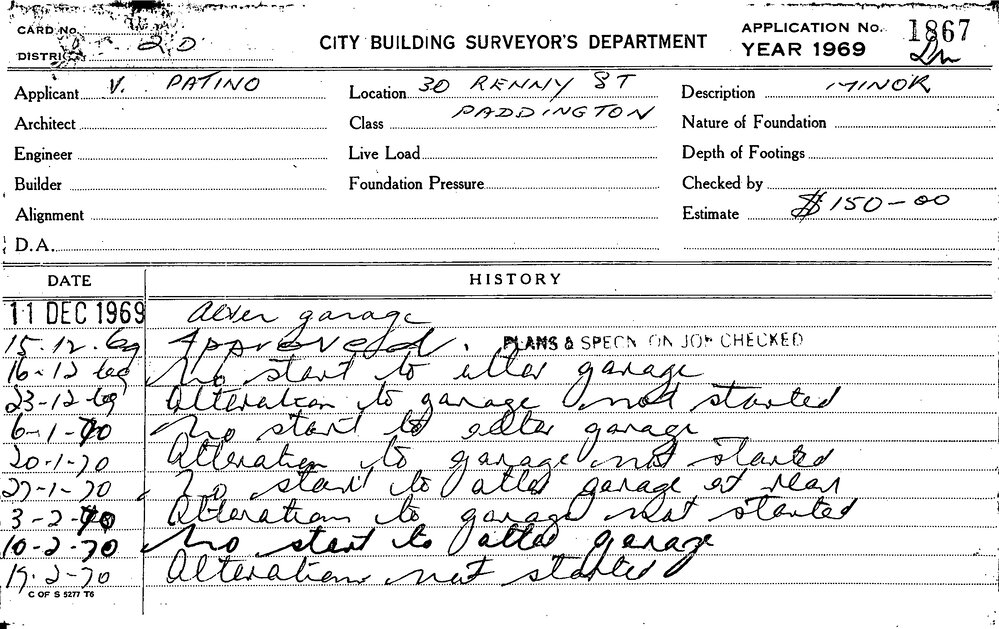 CARD No.
APPLICATION No. 1867
DISTRICT 20
CITY BUILDING SURVEYOR'S DEPARTMENT
YEAR 1969
Applicant V. PATINO
Location 30 RENNY ST
Description MINOR
Architect
Class PADDINGTON
Nature of Foundation
Engineer
Live Load
Depth of Footings
Builder
Foundation Pressure
Checked by
Alignment
Estimate $150-00
D.A.
DATE HISTORY
11 DEC 1969 Alter garage
15.12.69 Approved. PLANS & SPECN ON JOB CHECKED
16-12-69 No start to alter garage
23-12-69 Alteration to garage not started
6-1-70 No start to alter garage
20-1-70 Alteration to garage not started
27-1-70 No start to alter garage at rear
3-2-70 Alteration to garage not started
10-2-70 No start to alter garage
19-2-70 Alteration not started
C OF S 5277 T6